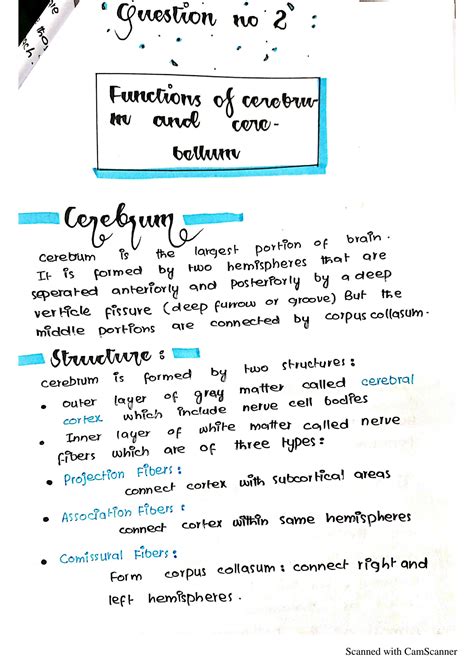 Question no 2
Functions of cerebru-
m and cere-
bellum
Cerebrum
cerebrum is the largest portion of brain.
It is formed by two hemispheres that are
seperated anteriorly and posteriorly by a deep
verticle fissure (deep furrow or groove) But the
middle portions are connected by corpus collasum.
Structure :
cerebrum is formed by two structures :
• outer layer of gray matter called cerebral
cortex which include nerve cell bodies
• Inner layer of white matter called nerve
fibers which are of three types :
• Projection Fibers :
connect cortex with subcortical areas
• Association Fibers :
connect cortex within same hemispheres
• Comissural Fibers :
Form corpus collasum : connect right and
left hemispheres .
Scanned with CamScanner